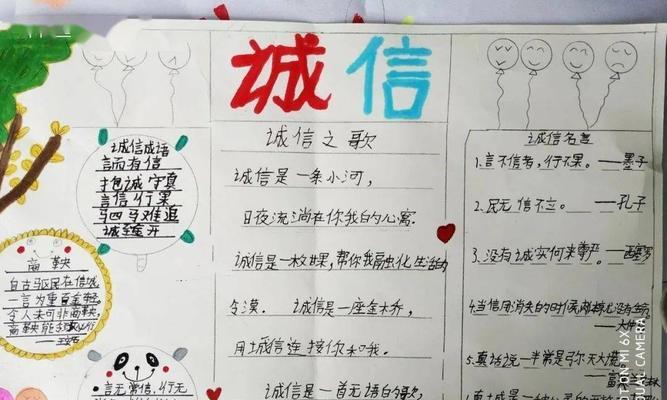 诚信
诚信成语
言而有信
抱诚守真
言信行果
驷马难追
诚至金开
商鞅
自古驱民在信诚
一言为重百金轻
今人未可非商鞅
商鞅能令政必行
——王安石
言无常信,行无
诚信之歌
诚信是一条小河,
日夜流淌在你我的心窝.
诚信是一枚果,帮你我融化生活的
令漠. 诚信是一座金桥,
用诚信连接你和我.
诚信是一首无语的歌,
诚信名言
1.言不信者,行不果。——墨子
2.民无信不立。——孔子
3.没有诚实何来尊严——西塞罗
4.当信用消失的时候,肉体就没有生命
——大仲
5.真话说一半常是弥天大谎
——富兰克林
真诚是一种心灵的开放
SHOT ON MI 6X
DUAL CAMERA